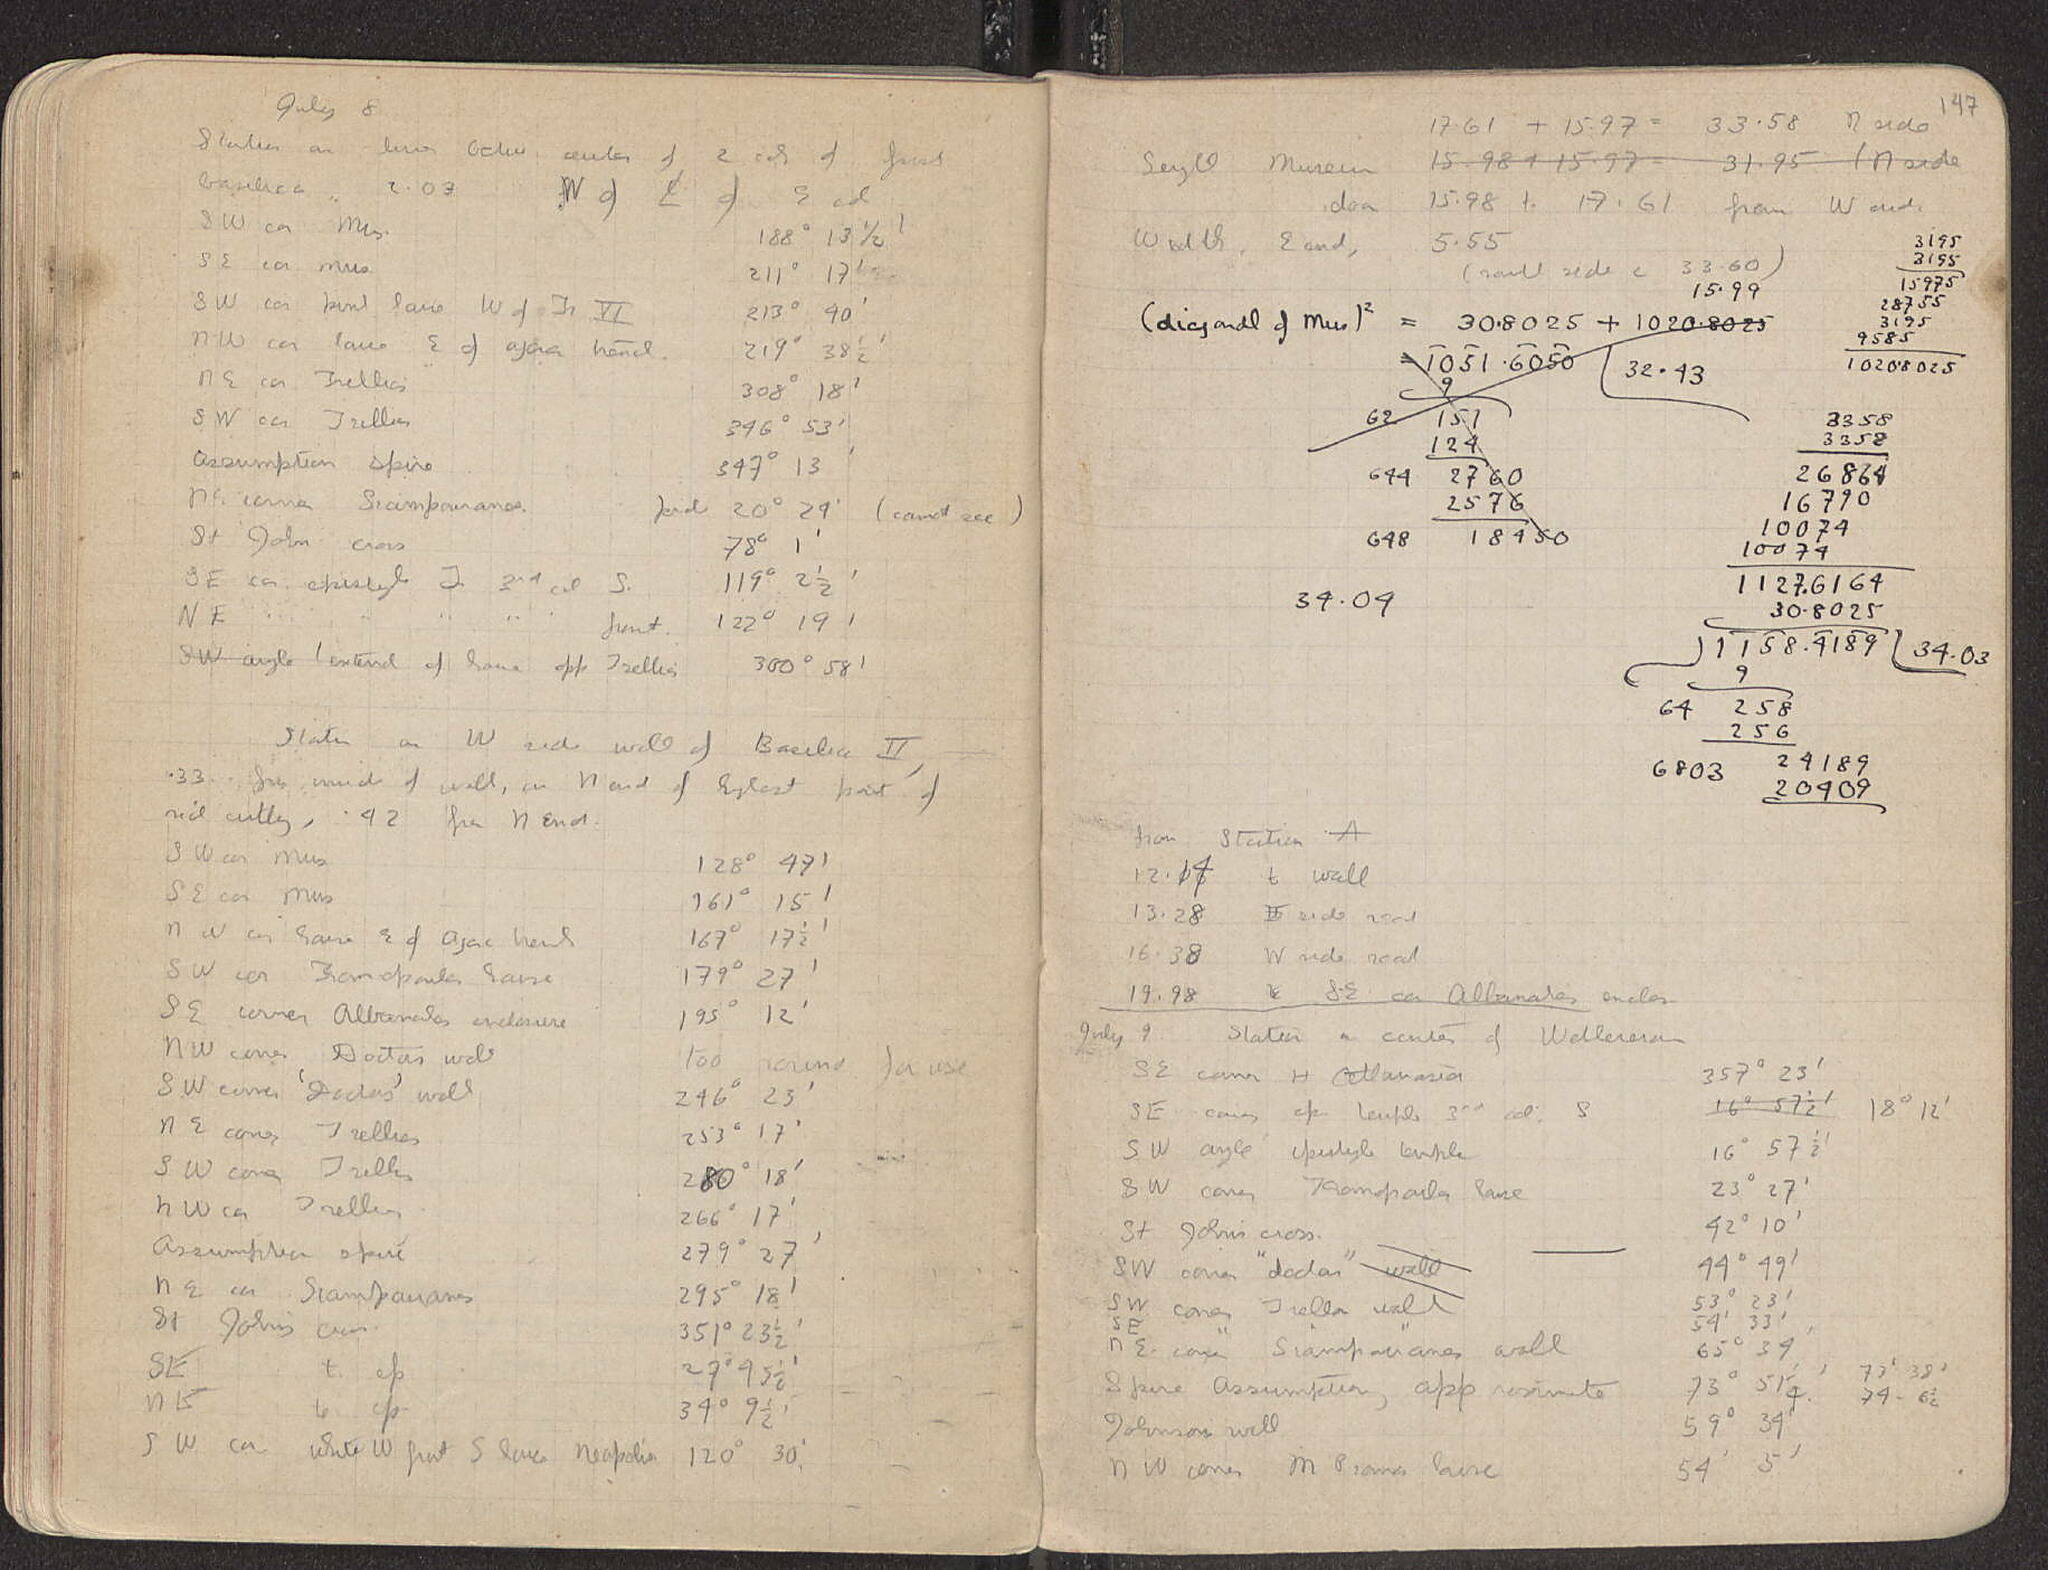 July 8
Station on line outer center of 2 cols of front
basilica 2.03 W of E of E col
SW cor Mus. 188° 13½'
SE cor mus 211° 17'
SW cor first house W of Tr VI 213° 40'
NW cor house E of agora trench. 219° 38½'
NE cor Trellis 308° 18'
SW cor Trellis 346° 53'
Assumption Spire 347° 13'
NE corner Siampouranes. 20° 29' (cannot see)
St John cross 78° 1'
SE cor epistyle T 3rd col S. 119° 2½'
NE " " " " front. 122° 19'
SW angle (extend of house opp Trellis 300° 58'
Station on W side wall of Basilica II,
.33 from mid of wall, on N end of highest part of
cutting, .42 from N end.
SW cor mus 128° 47'
SE cor mus 161° 15'
NW cor house E of agora trench 167° 17½'
SW cor house 179° 27'
SE corner Albanakes enclosure 195° 12'
NW corner Doctors wall too round for use
SW corner 'Doctors' wall 246° 23'
NE corner Trellis 253° 17'
SW corner Trellis 280° 18'
NW cor Trellis 266° 17'
Assumption spire 279° 27'
NE cor Siampouranes 295° 18'
St Johns cross 351° 23½'
SE t. ep 27° 43½'
NE t. ep 34° 9½'
SW cor white W front S house Neapolis 120° 30'
147
17.61 + 15.97 = 33.58 N side
Museum 15.98 + 15.97 = 31.95 (N side
door 15.98 to 17.61 from W end.
Width, E end, 5.55
(south side c 33.60)
15.99
3195
3195
15975
28755
3195
9585
1020.8025
(diagonal of Mus)² = 30.8025 + 1020.8025
= 1051.6050 32.43
9
62 151
124
644 2760
2576
648 18450
34.04
3358
3358
26864
16790
10074
10074
1127.6164
30.8025
1158.4189 34.03
9
64 258
256
6803 24189
20409
from Station A
12.14 to wall
13.28 E side road
16.38 W side road
19.98 to SE cor Albanakes enclos
July 9 Station on center of
SE corner H Athanasia 357° 23'
SE corner ep temple 3rd col. S 16° 57½' 18° 12'
SW angle epistyle temple 16° 57½'
SW corner house 23° 27'
St Johns cross. 42° 10'
SW corner "doctor" wall 44° 49'
SW corner Trellis wall 53° 23'
SE " " 54° 33'
NE corner Siampouranes wall 65° 34'
Spire Assumption, approximate 73° 51' 73° 38'
74 - 6½
Johnson wall 59° 34'
NW corner house 54° 5'